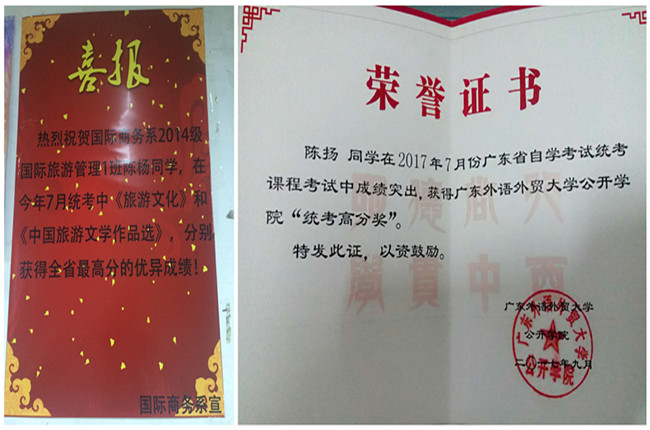 喜报
热烈祝贺国际商务系2014级
国际旅游管理1班陈杨同学，在
今年7月统考中《旅游文化》和
《中国旅游文学作品选》，分别
获得全省最高分的优异成绩！
国际商务系宣
荣誉证书
陈扬 同学在2017年7月份广东省自学考试统考
课程考试中成绩突出，获得广东外语外贸大学公开学
院“统考高分奖”。
特发此证，以资鼓励。
广东外语外贸大学
公开学院
二〇一七年九月
广东外语外贸大学
公开学院